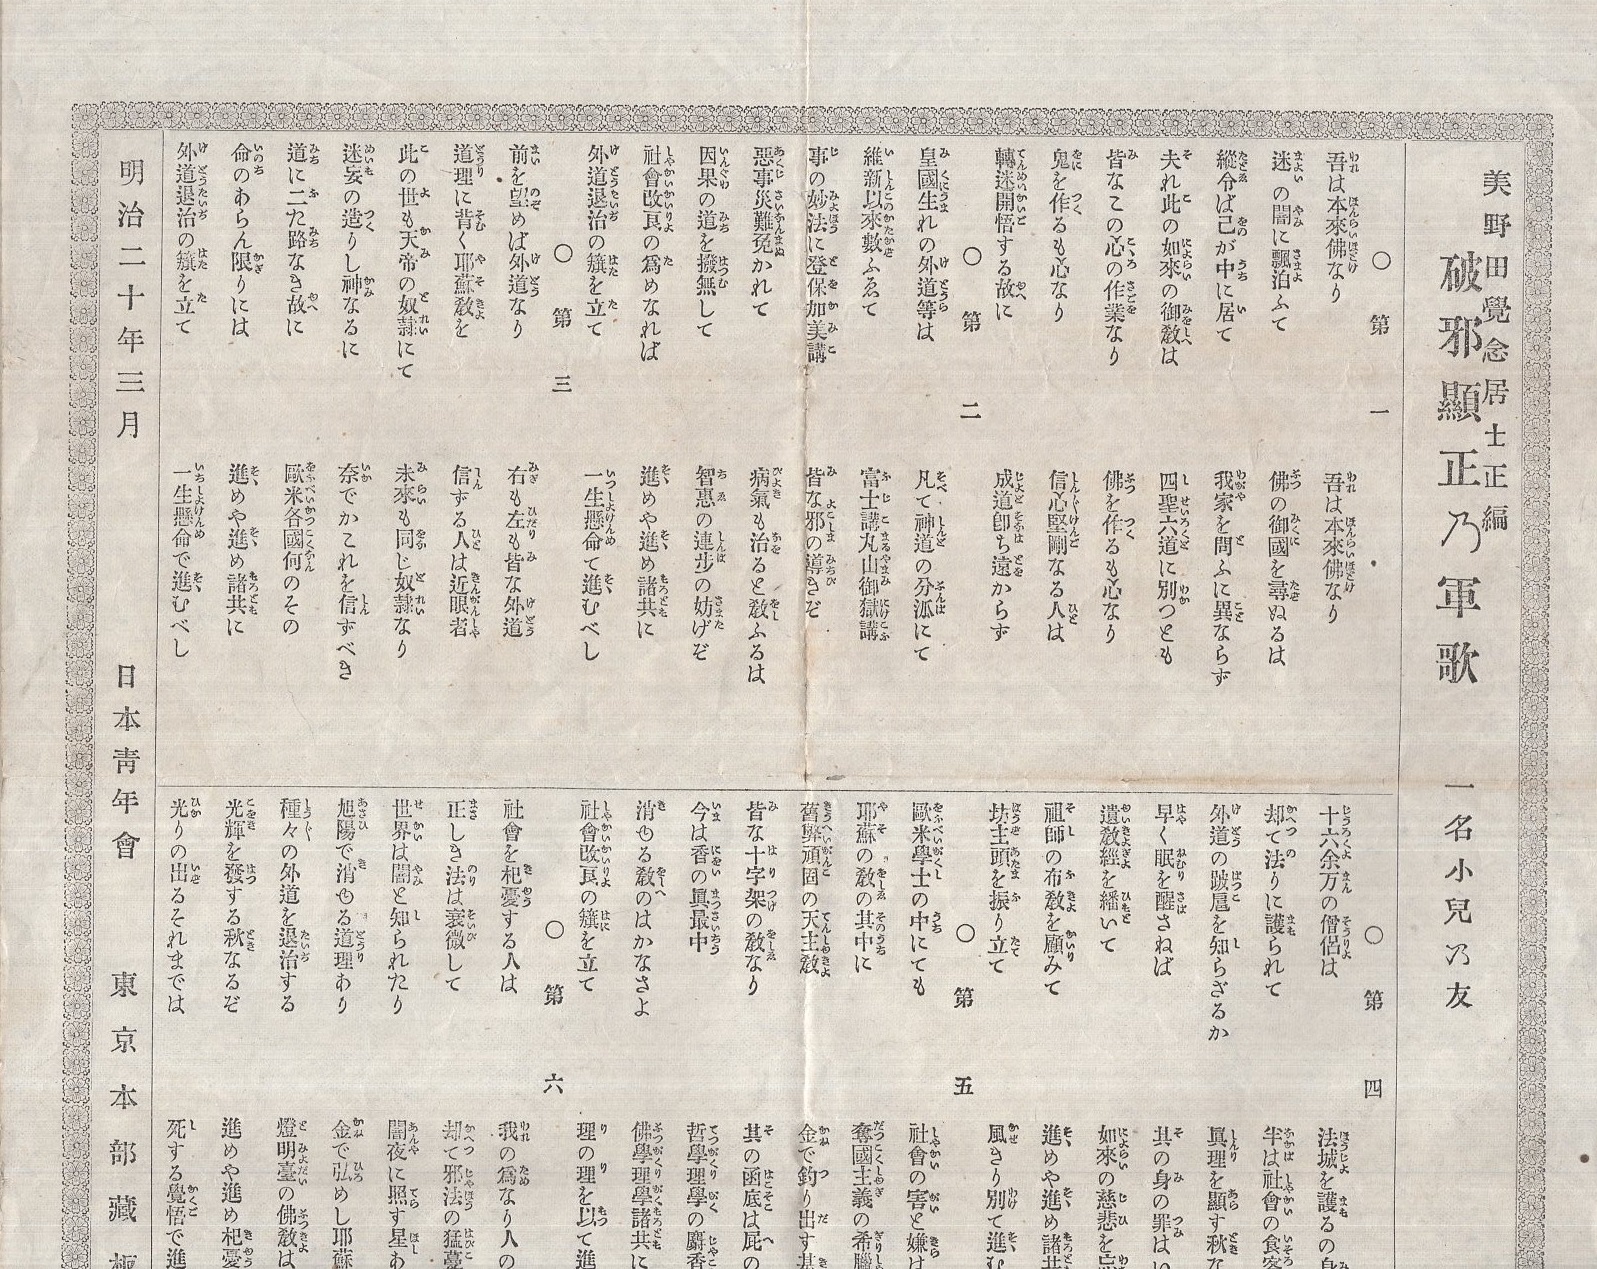 美野田覺念居士正編
破邪顯正乃軍歌
一名小兒乃友
○第一
吾は本來佛なり
吾は本來佛なり
迷の闇に飄泊ふて
佛の御國を尋ぬるは
縱令ば己が中に居て
我家を問ふに異ならず
夫れ此の如來の御敎は
四聖六道に別つとも
皆なこの心の作業なり
佛を作るも心なり
鬼を作るも心なり
信心堅剛なる人は
轉迷開悟する故に
成道卽ち遠からず
○第二
皇國生れの外道等は
凡て神道の分派にて
維新以來數ふゑて
富士講丸山御獄講
事の妙法に登保加美講
皆な邪の導きぞ
惡事災難冤かれて
病氣も治ると敎ふるは
因果の道を撥無して
智惠の連步の妨げぞ
社會改良の爲めなれば
進めや進め諸共に
外道退治の籏を立て
一生懸命て進むべし
○第三
前を望めば外道なり
右も左も皆な外道
道理に背く耶蘇敎を
信ずる人は近眼者
此の世も天帝の奴隷にて
未來も同じ奴隷なり
迷妄の造りし神なるに
奈でかこれを信ずべき
道に二た路なき故に
歐米各國何のその
命のあらん限りには
進めや進め諸共に
外道退治の籏を立て
一生懸命で進むべし
○第四
十六余万の僧侶は
法城を護るの身
却て法りに護られて
半は社會の食客
外道の跛扈を知らざるか
眞理を顯す秋な
早く眠を醒さねば
其の身の罪はい
遺敎經を繙いて
如來の慈悲を忘
祖師の布敎を顧みて
進めや進め諸共
坊主頭を振り立て
風きり別て進む
○第五
歐米學士の中にても
社會の害と嫌は
耶蘇の敎の其中に
奪國主義の希臘
舊弊頑固の天主敎
金で釣り出す基
皆な十字架の敎なり
其の函底は屁の
今は香の眞最中
哲學理學の麝香
消ゆる敎のはかなさよ
佛學理學諸共に
社會改良の籏を立て
理の理を以て進
○第六
社會を杞憂する人は
我の爲なり人の
正しき法は衰微して
却て邪法の猛蔓
世界は闇と知られたり
闇夜に照す星あ
旭陽で消ゆる道理あり
金で弘めし耶蘇
種々の外道を退治する
燈明臺の佛敎は
光輝を發する秋なるぞ
進めや進め杞憂
光りの出るそれまでは
死する覺悟で進
明治二十年三月
日本靑年會
東京本部藏